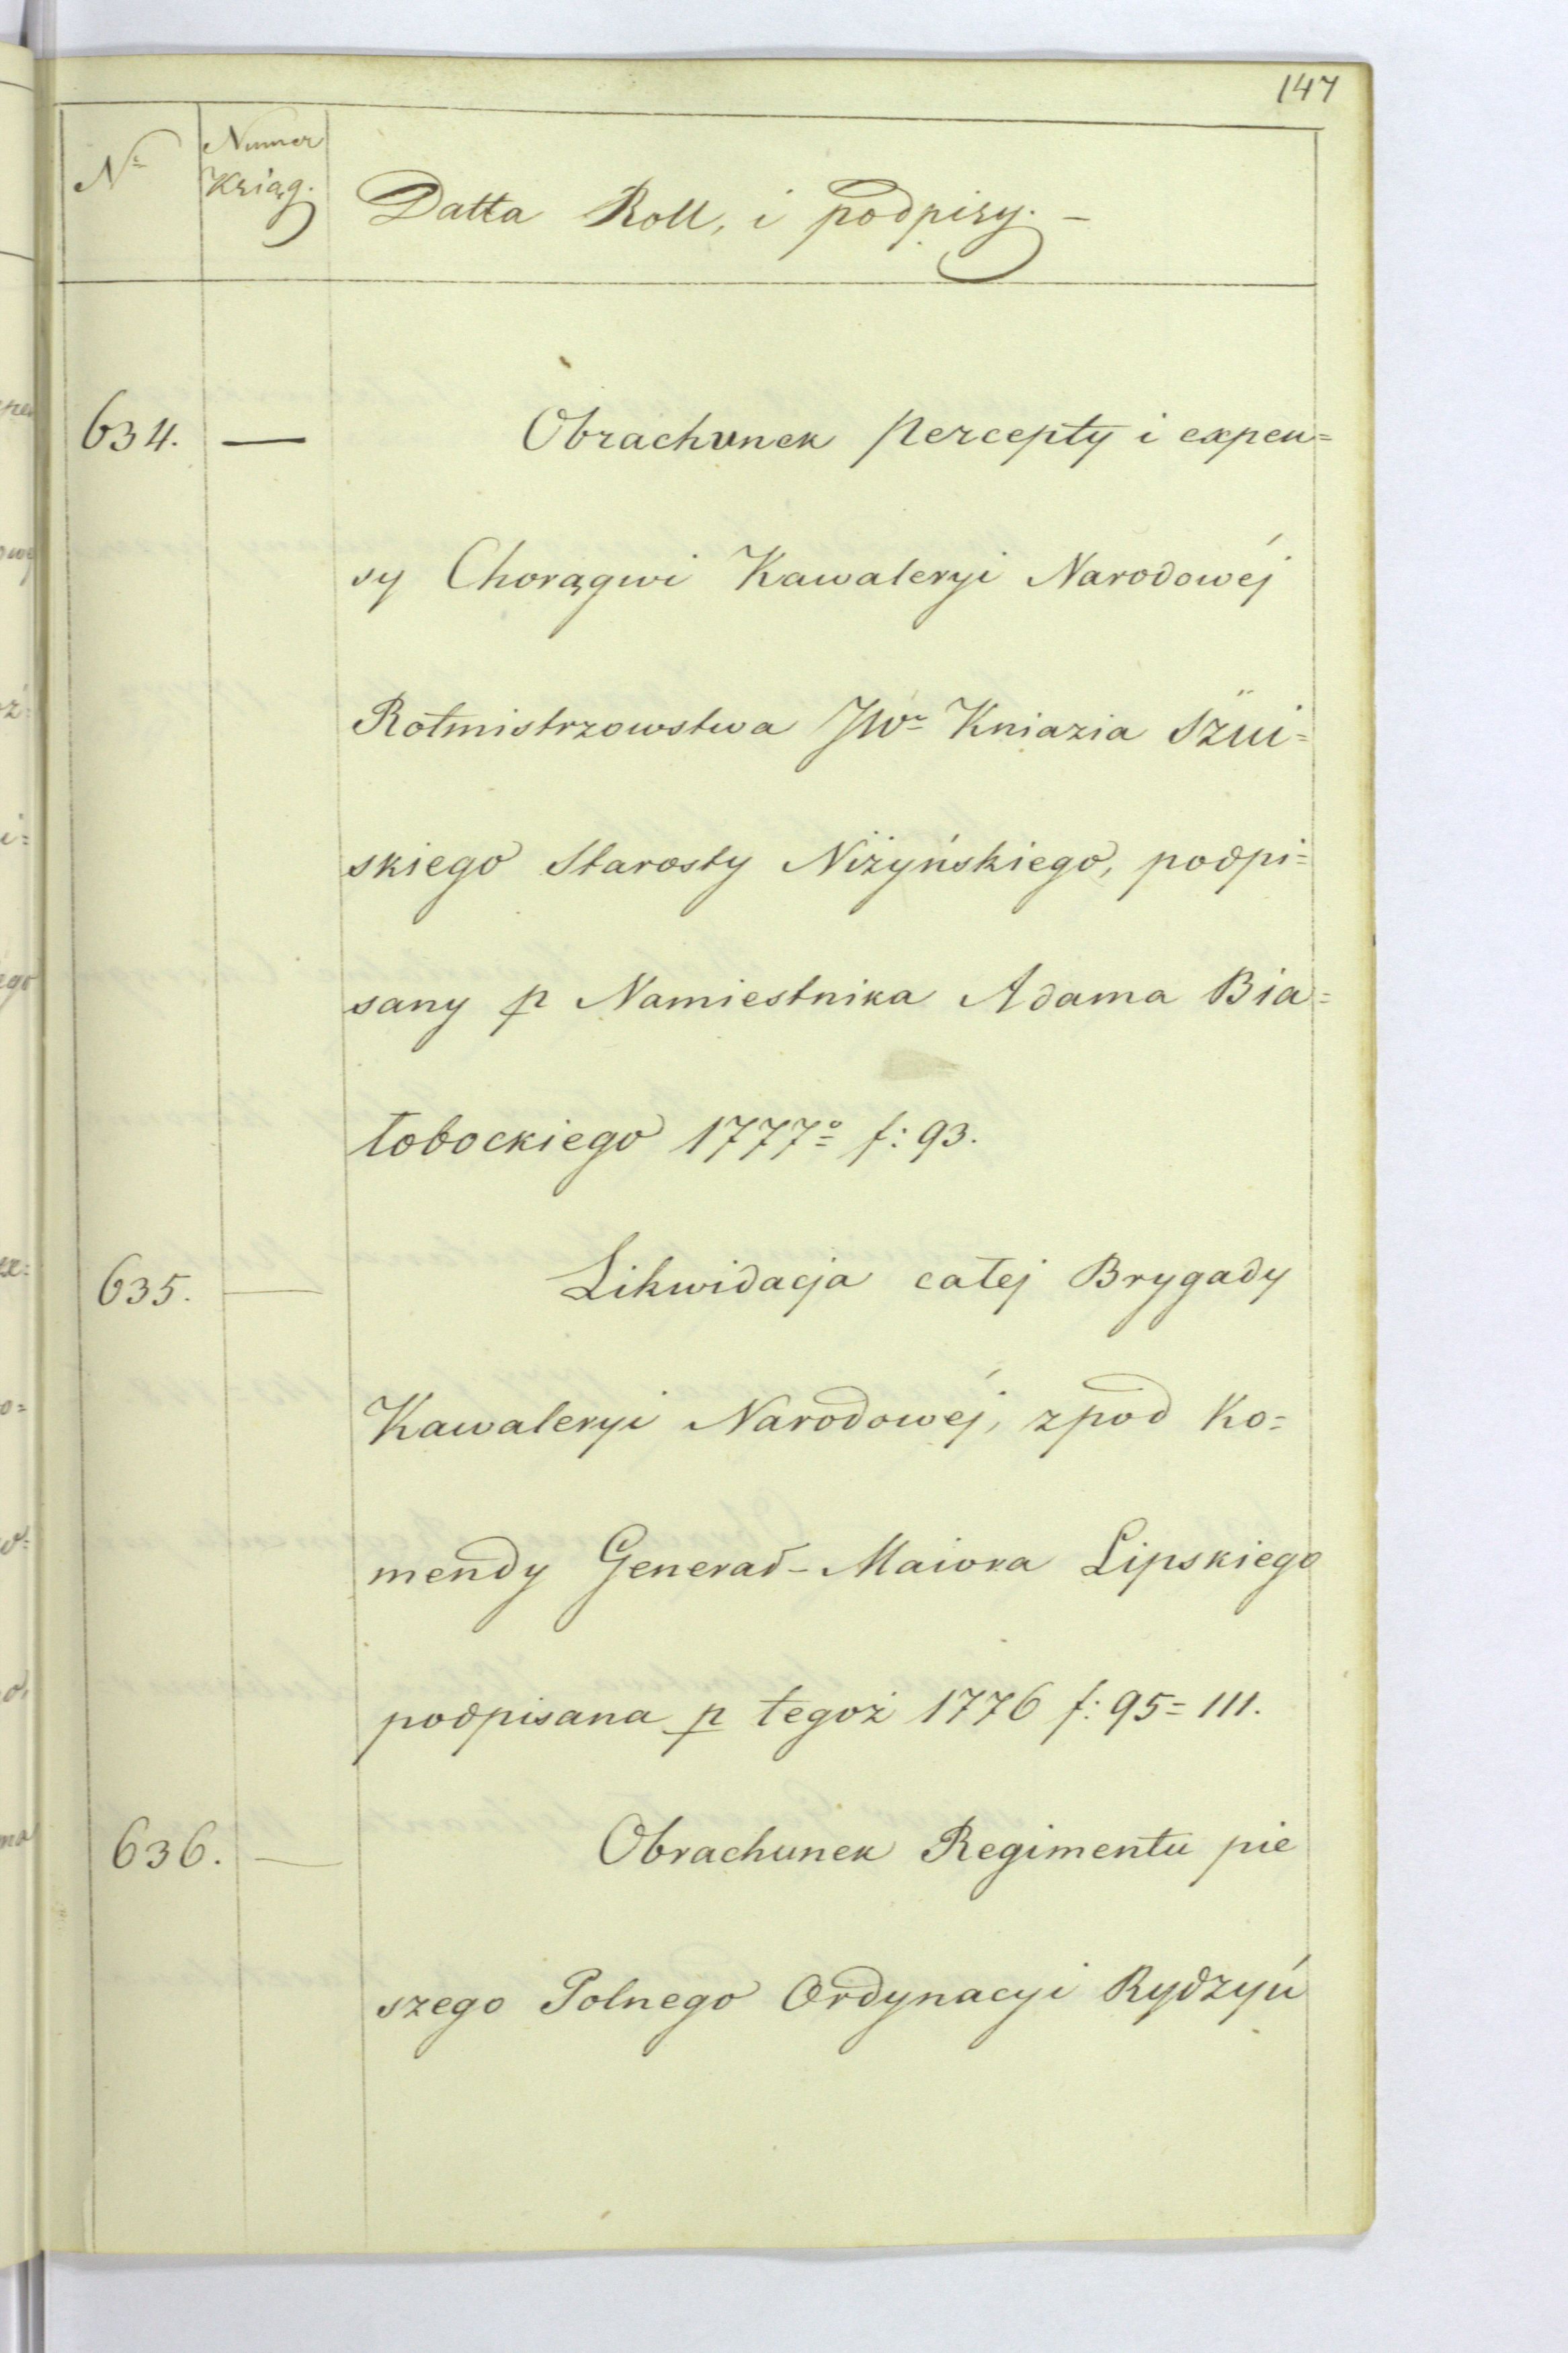 147
Nr
Numer
Ksiąg.
Datta Roll, i podpisy. –
634. —
Obrachunek percepty i expen=
sy Chorągwi Kawaleryi Narodowéj
Rotmistrzowstwa JWo Kniazia Szui=
skiego Starosty Niżyńskiego, podpi=
sany p Namiestnika Adama Bia=
łobockiego 1777o f: 93.
635. —
Likwidacja całej Brygady
Kawaleryi Narodowéj, zpod Ko=
mendy Generał-Maiora Lipskiego
podpisana p tegoż 1776 f: 95=111.
636. —
Obrachunek Regimentu pie
szego Polnego Ordynacyi Rydzyń